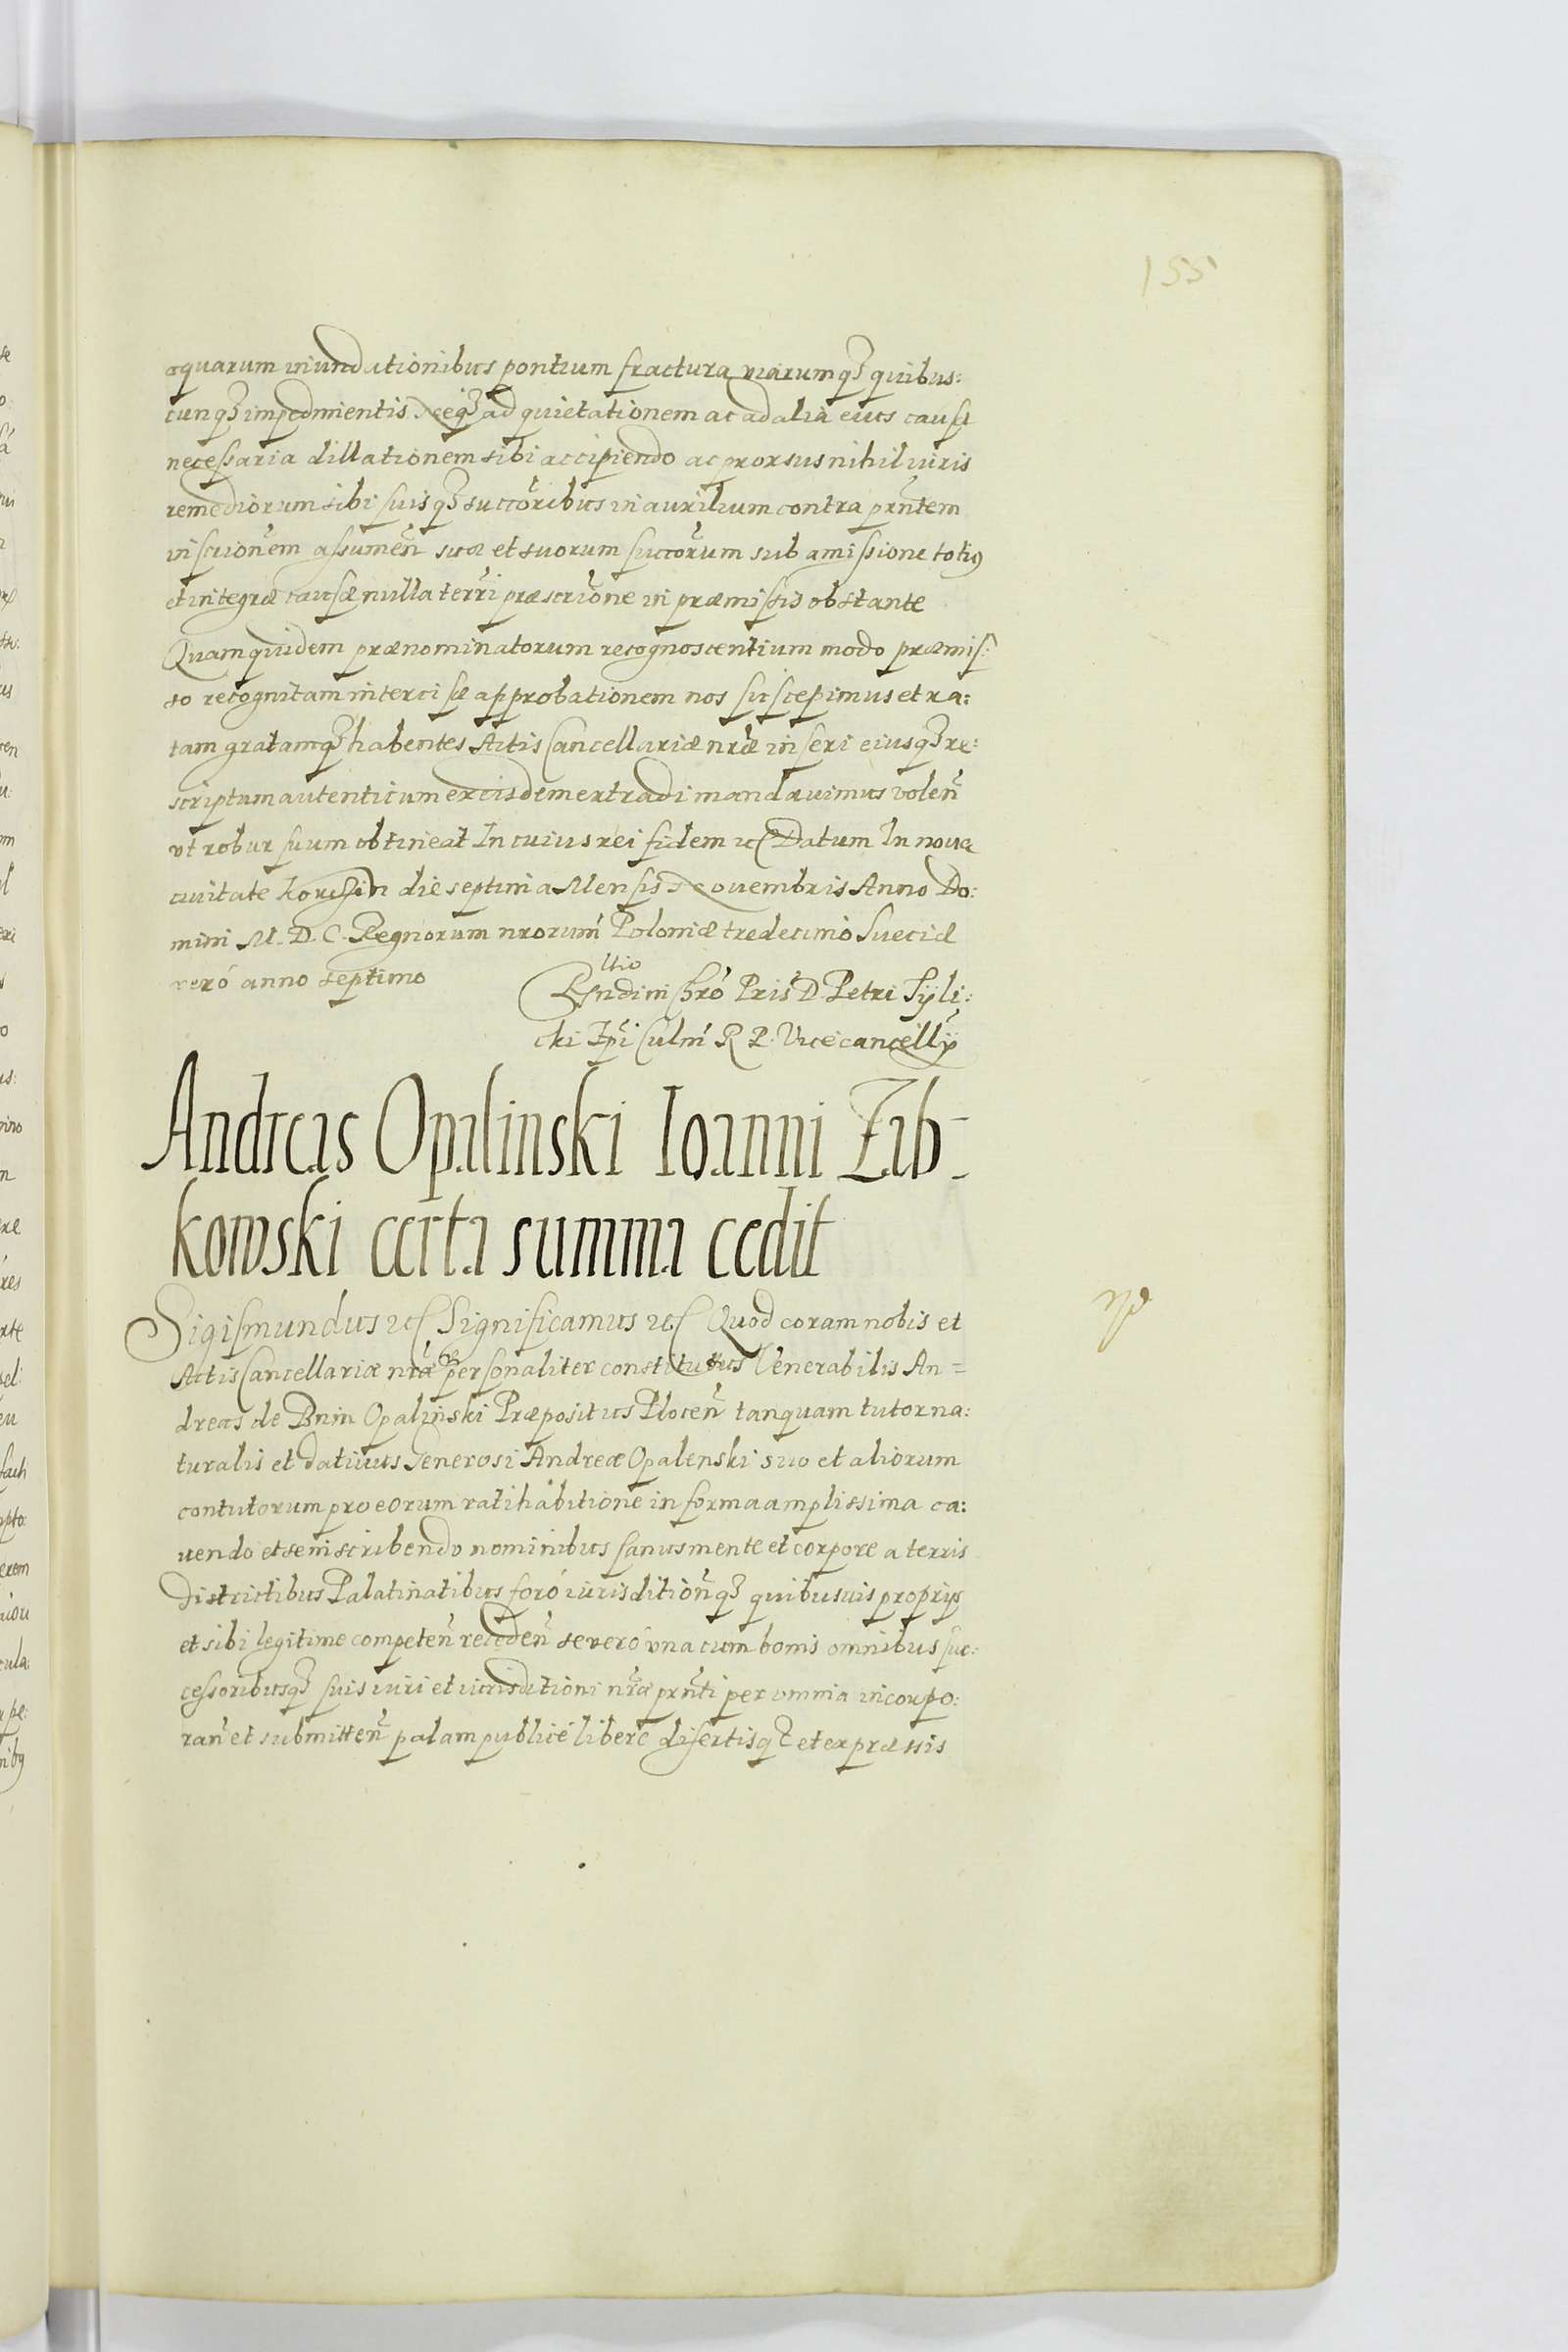 155
aquarum inundationibus pontium fractura viarumq quibus:
cunq impedimentis Neq ad quietationem ac ad alia eius causa
necessaria dillationem sibi accipiendo ac prorsus nihil iuris
remediorum sibi suisq succõribus in auxilium contra prñtem
inscriõnem assumeñ sua et suorum succõrum sub amissione totiq
et integræ causæ nulla terrĩ præscriõne in præmissis obstante
Quamquidem prænominatorum recognoscentium modo præmis:
so recognitam intercisæ approbationem nos suscepimus et ra:
tam gratamq habentes Actis Cancellariæ nræ inseri eiusq re:
scriptum autenticum ex eisdem extradi mandavimus voleñ
ut robur suum obtineat In cuius rei fidem etc Datum In nova
civitate Korczin die septima Mensis Novembris Anno Do:
mini M. D. C. Regnorum nrorum Poloniæ tredecimo Sueciæ
veró anno septimo
Rltio Rsndini Chró Pris D Petri Tÿli:
cki Epi Culm R P. Vicecancellÿ
Andreas Opalinski Ioanni Zab-
kowski certa summa cedit
Sigismundus etc Significamus etc Quod coram nobis et
Actis Cancellariæ nræ personaliter constitutus Venerabilis An=
dreas de Bnin Opalinski Præpositus Ploceñ tanquam tutor na:
turalis et dativus Generosi Andreæ Opalenski suo et aliorum
contutorum pro eorum ratihabitione in forma amplissima ca:
vendo et se inscribendo nominibus sanus mente et corpore a terris
Districtibus Palatinatibus foró iurisditioñq quibusvis proprÿs
et sibi legitime competeñ recedeñ se veró una cum bonis omnibus suc:
cessoribusq suis iuri et iurisditioni nræ prñti per omnia incorpo:
rañ et submitteñ palam publicé liberé disertisq et expræssis